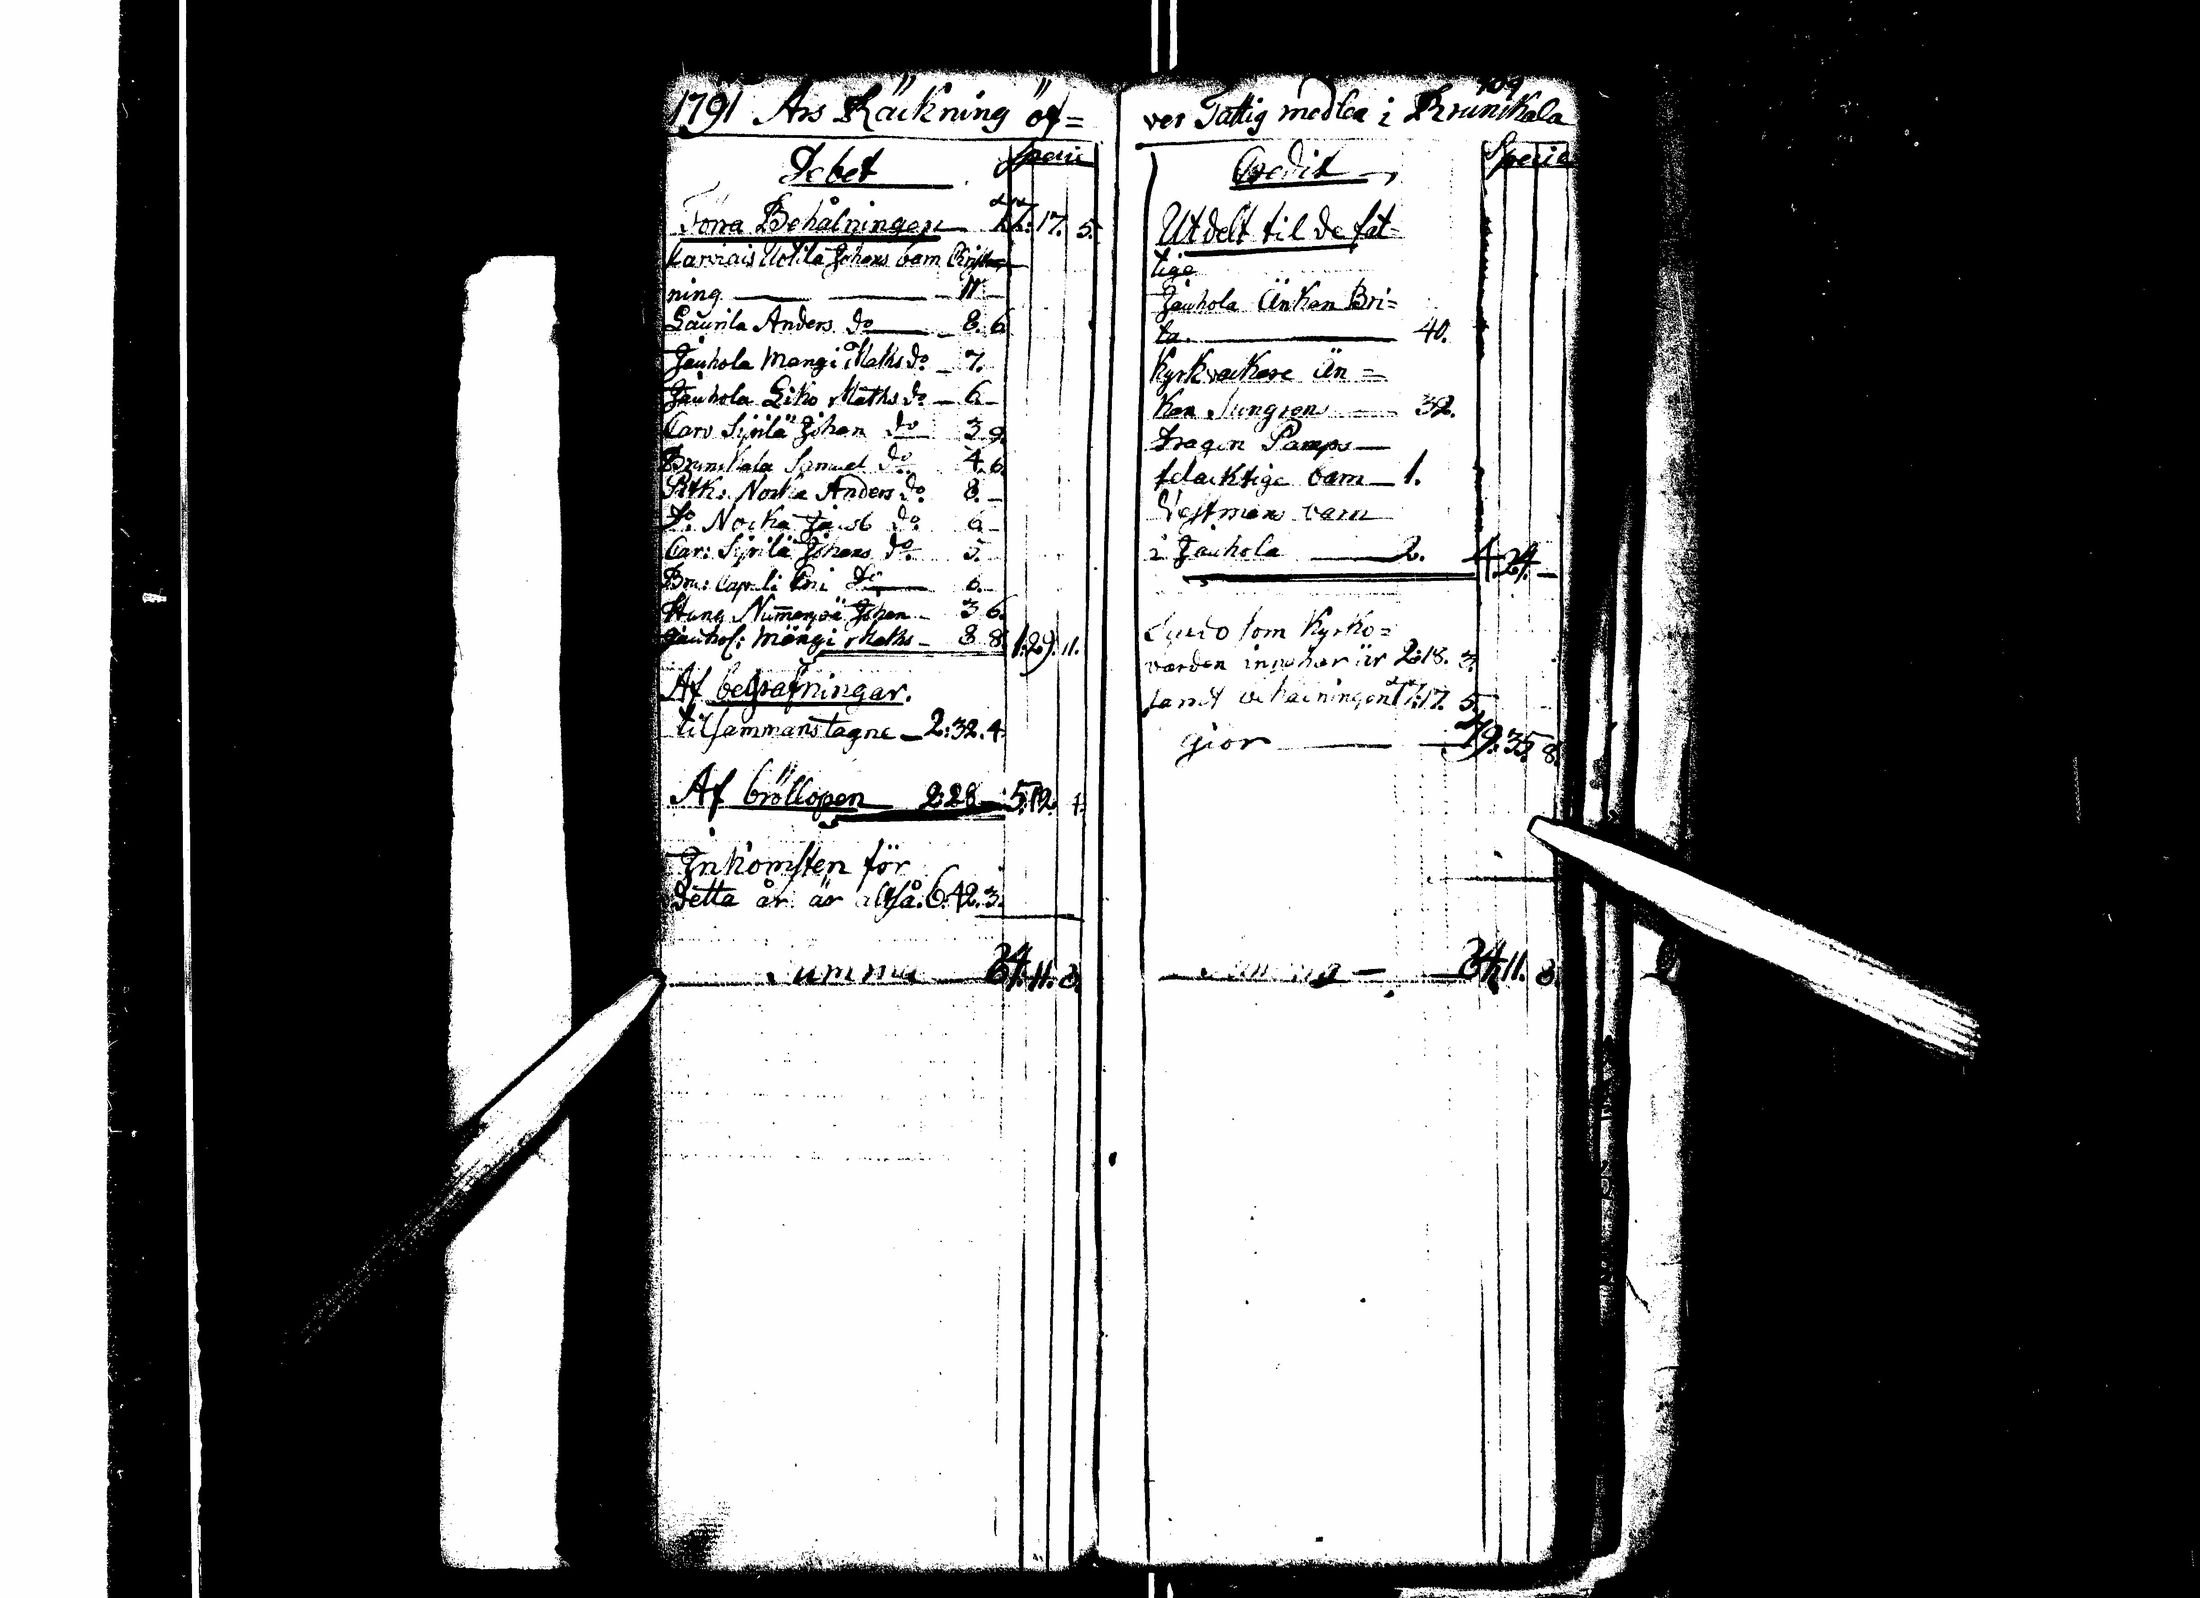 1791 Års Räckning öf=
Debet Specie
Förra Behålningen 17. 5.
Karviais Uotila Johans barn Christ
ning 11
Laurila Anders do 8. 6
Jauhola Mangi Maths do 7.
Jauhola Eiko Maths do 6
Carv Syrilä Johan do 3 9.
Brunnkala Samuel do 4. 6
Nocka Anders do. 8.
Do Nocka Jacob do. 6
Car: Syrilä Johans do 5.
Bru: do 6.
Johan 3 6.
Jauhol: Mängi Maths 8 8 1. 29. 11.
Af begrafningar.
tilsammanstagne 2: 32. 4
Af bröllopen 2: 28 5. 12. 4.
Inkomsten för
detta år är altså. 6. 42. 3.
Summa 24. 11. 8.
109
ver Fattig medlen i Brunnkala
Credit Specie
Utdelt til de fat=
tige
Jauhola Änkan Bri=
ta. 40.
Kyrkväckare Än=
kan Liungren 32.
Dragon Pamps
felacktige barn 1.
Vestmans barn
i Jauhola 2. 4. 24.
som Kyrko=
värden innehar är 2: 18. 3.
samt behålningen 17: 17. 5.
giör 19. 35. 8.
Summa 24. 11. 8.